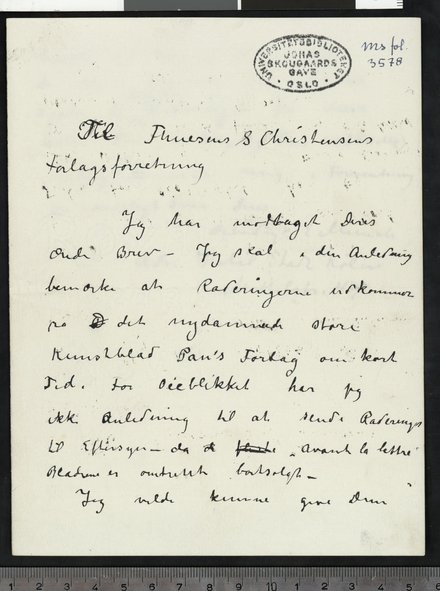 UNIVERSITETSBIBLIOTEKET
JONAS
SKOUGAARDS
GAVE
OSLO
Ms fol.
3578
Til Thuesens & Christensens
Forlagsforretning
Jeg har modtaget Deres
ærede Brev – Jeg skal i den Anledning
bemærke at Raderingerne udkommer
på det nydannede store
Kunstblad Pan's Forlag om kort
Tid. For Øieblikket har jeg
ikke Anledning til at sende Raderinge
til Eftersyn – da de flæste „avant la lettre"
Bladene er omtrent bortsolgt –
Jeg vilde kunne give Dem